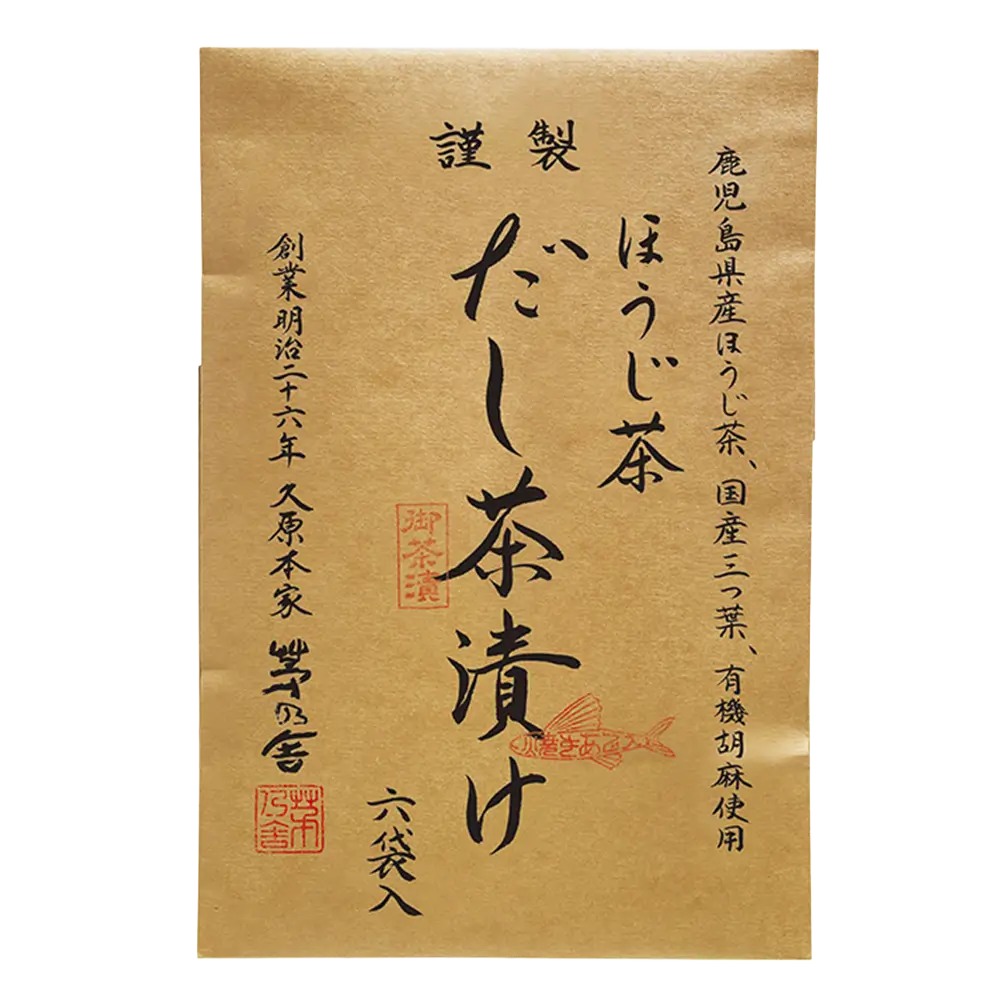 謹製
鹿児島県産ほうじ茶、国産三つ葉、有機胡麻使用
ほうじ茶
だし茶漬け
焼きあご入
御茶漬
六袋入
創業明治二十六年 久原本家 茅乃舎
茅乃舎